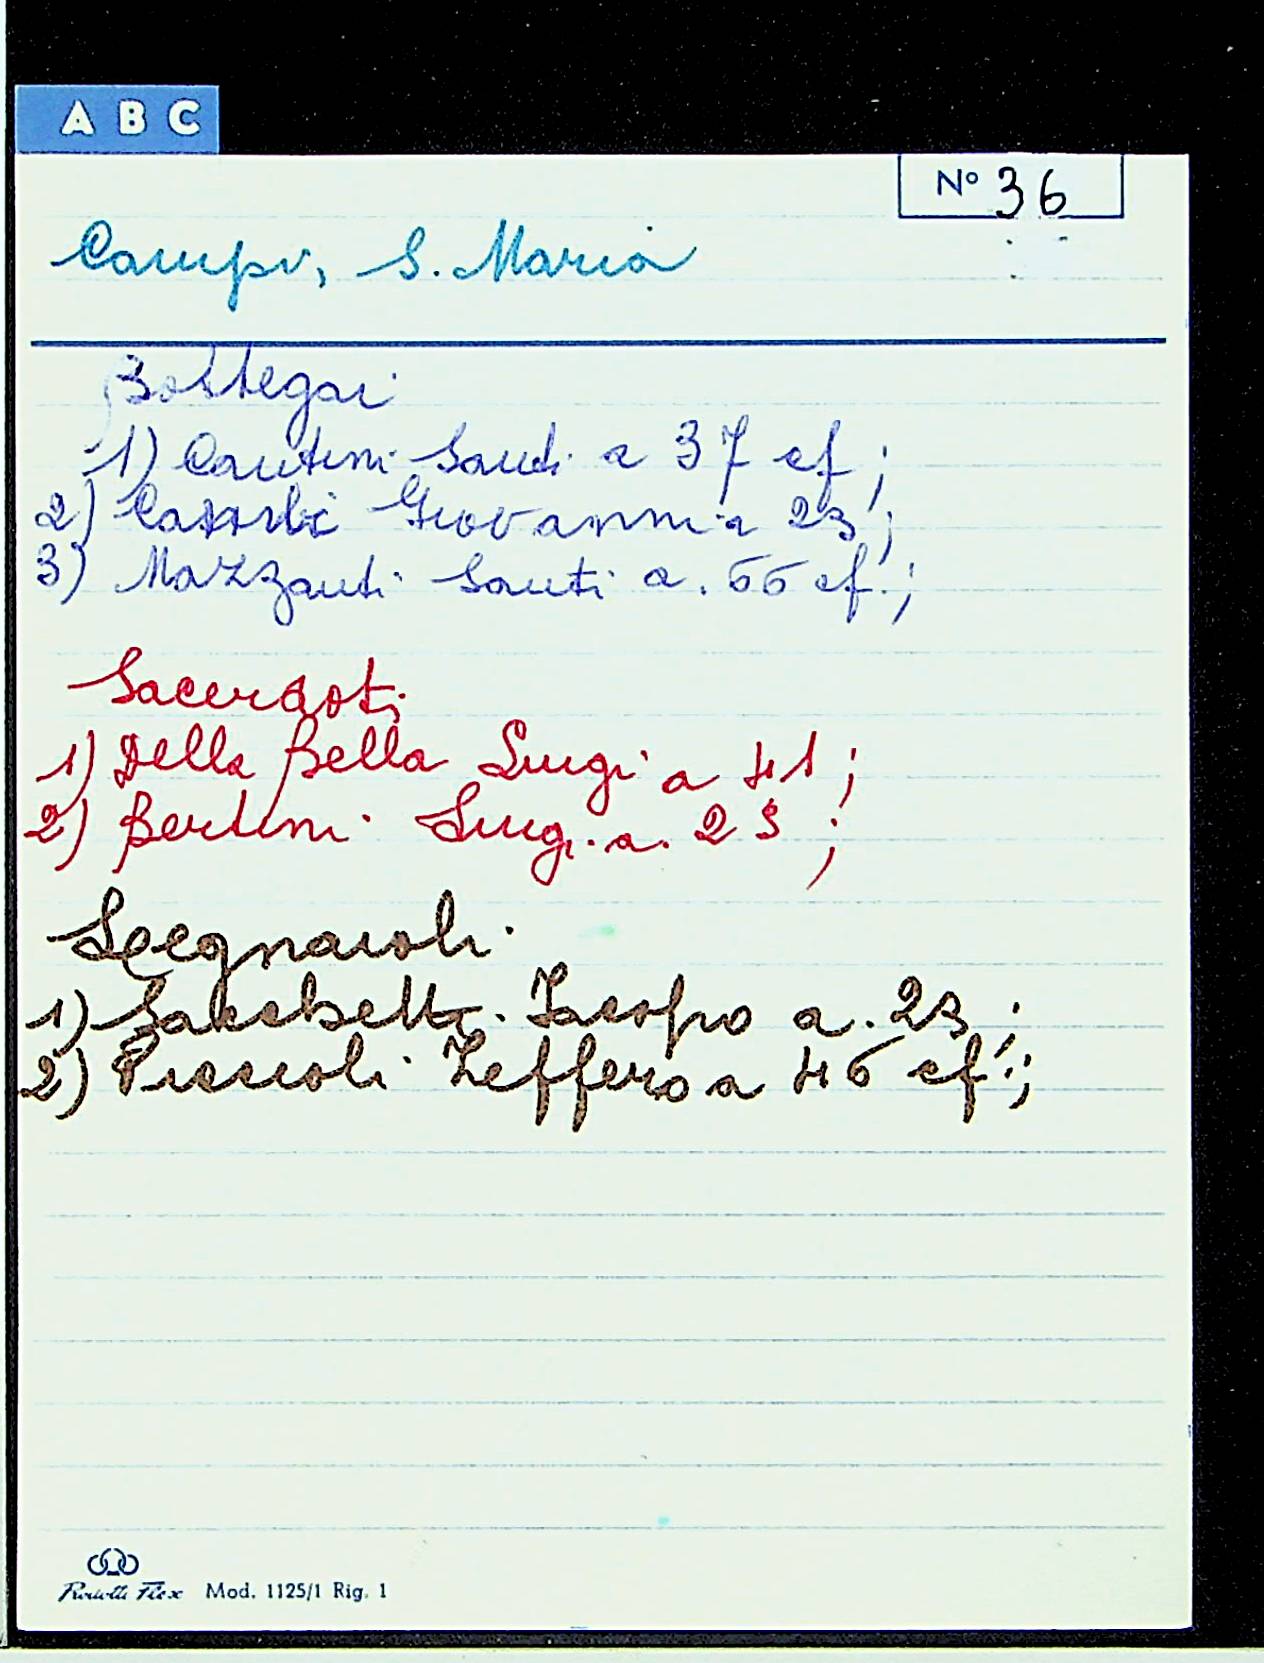 A B C
Nº 36
Campi, S. Maria
Bottegai
1) Cantini Santi a 37 cf;
2) Giovanni a 23;
3) Mazzanti Santi a. 66 cf.;
Sacerdoti
1) Della Bella Luigi a 41;
2) Bertini Luigi. a. 23;
Legnaioli
1) Jacopo a. 23;
2) Piccioli Zeffero a 46 cf.;
Flex Mod. 1125/1 Rig. 1